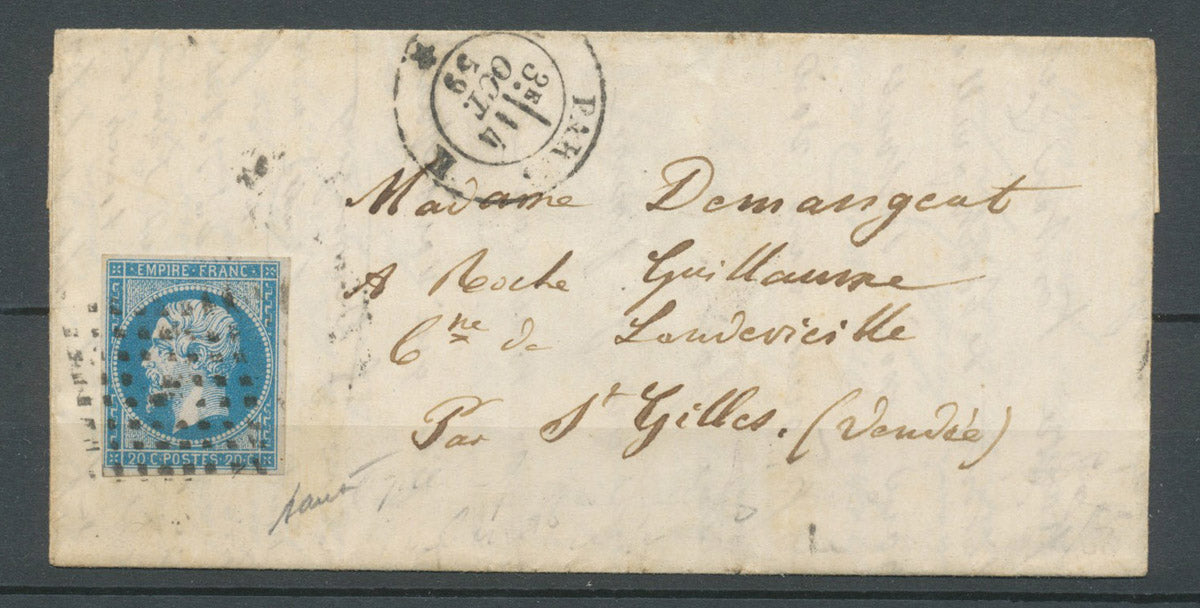 PARIS
K
3E
14
OCT.
59
Madame Demangeat
A Roche Guillaume
Cne de Landevieille
Par St Gilles. (Vendée)
EMPIRE·FRANC·
20·C·POSTES·20·C·